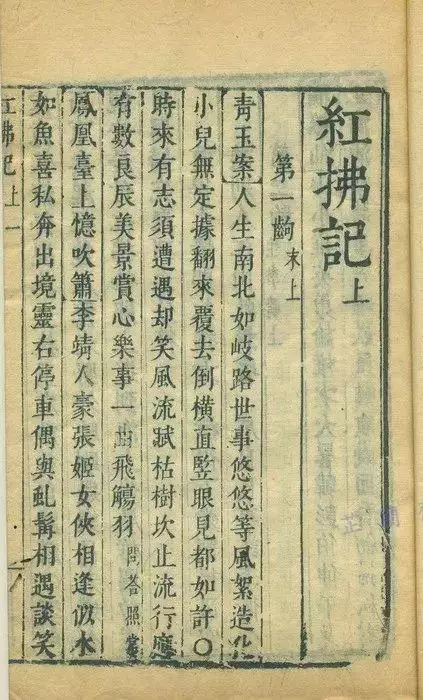 紅拂記上
第一齣 末上
青玉案人生南北如岐路世事悠悠等風絮造化
小兒無定據翻來覆去倒橫直竪眼見都如許○
時來有志須遭遇却笑風流賦枯樹坎止流行應
有數良辰美景賞心樂事一曲飛觴羽 問荅照常
鳳凰臺上憶吹簫李靖人豪張姬女俠相逢似水
如魚喜私奔出境靈右停車偶與虬髯相遇談笑
紅拂記 上 一